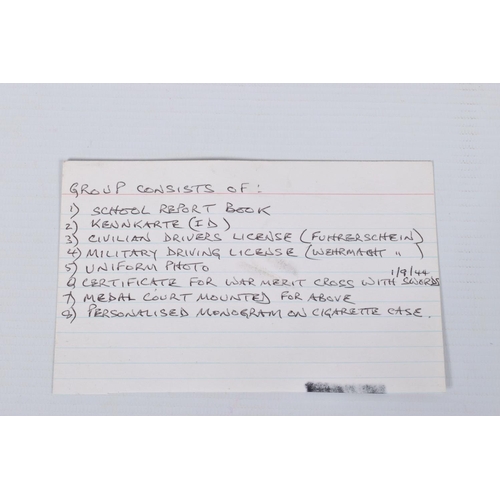 GROUP CONSISTS OF:
1) SCHOOL REPORT BOOK
2) KENNKARTE (ID)
3) CIVILIAN DRIVERS LICENSE (FUHRERSCHEIN)
4) MILITARY DRIVING LICENSE (WEHRMACHT ")
5) UNIFORM PHOTO
1/9/44
6) CERTIFICATE FOR WAR MERIT CROSS WITH SWORDS
7) MEDAL COURT MOUNTED FOR ABOVE
8) PERSONALISED MONOGRAM ON CIGARETTE CASE.